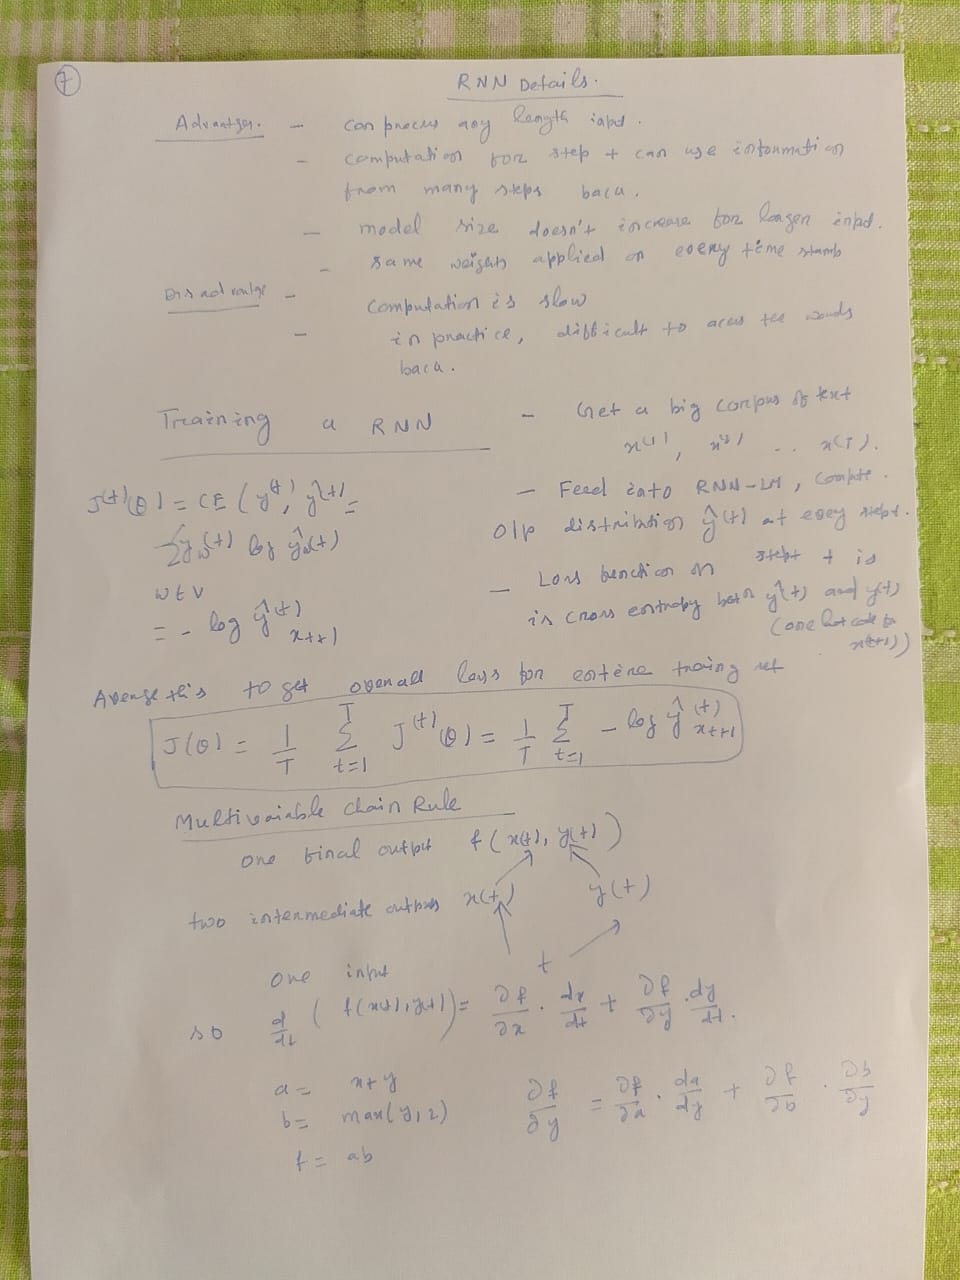 7
RNN Details.
Advantges. - can process any length input.
- computation for step t can use information
from many steps back.
- model size doesn't increase for longer input.
- same weights applied on every time stamp
Disadvantge - computation is slow
- in practice, difficult to access tee words
back.
Training a RNN - Get a big corpus of text
x(1), x(2) .. x(T).
J(t)(θ) = CE (y(t), ŷ(t)) = - Feed into RNN-LM, compute.
-Σ yw(t) log ŷw(t) o/p distribution ŷ(t) at every step t.
w∈V - Loss function on step t is
= - log ŷ(t) xt+1 is cross entropy betn ŷ(t) and y(t)
(one hot code for
x(t+1))
Average this to get overall loss for entire traing set
J(θ) = 1/T Σ t=1 T J(t)(θ) = 1/T Σ t=1 T - log ŷ(t) xt+1
Multivariable Chain Rule
one final output f(x(t), y(t))
two intermediate outputs x(t) y(t)
one input t
so d/dt (f(x(t), y(t))) = ∂f/∂x . dx/dt + ∂f/∂y . dy/dt.
a = x+y
b = max(y,z) ∂f/∂y = ∂f/∂a . da/dy + ∂f/∂b . ∂b/∂y
f = ab